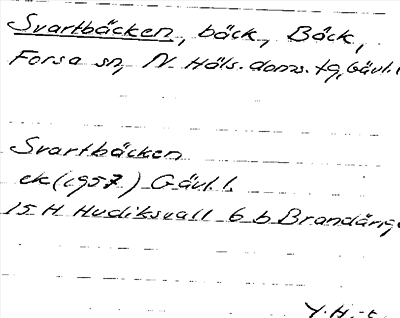 Svartbäcken, bäck, Bäck,
Forsa sn, N. Häls. doms. tg, Gävl. l.
Svartbäcken
ek (1957) Gävl. l.
15 H Hudiksvall 6 b